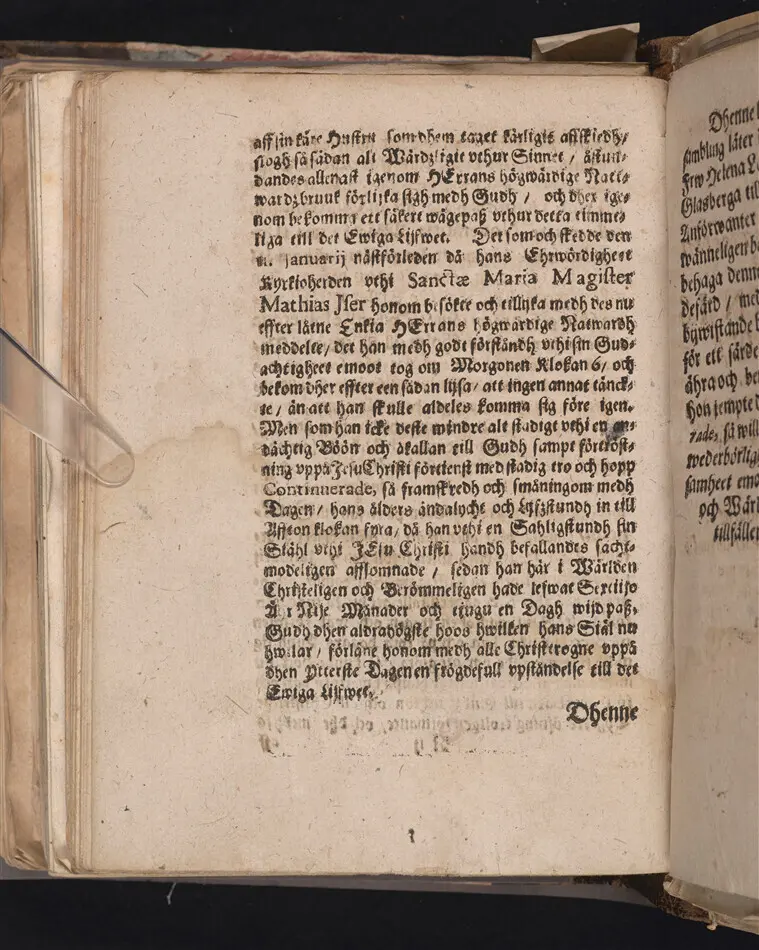 aff sin käre Hustru som dhem taget kärligit affskiedh/
slogh så sådan alt Wärdzligit vthur Sinnet / åstun-
dandes allenast igenom HErrans högwärdige Natt-
wardzbruuk förlijka sigh medh Gudh / och dher ige-
nom bekomma ett säkert wägepaß vthur detta timme-
liga till det Ewiga Lijfwet. Det som och skedde den
Januarij nästförleden då hans Ehrwördigheet
Kyrkioherden vthi Sanctæ Maria Magister
Mathias Jser honom besökte och tillijka medh des nu
effter låtne Enkia HErrans högwärdige Natwardh
meddelte/ det han medh godt förståndh vthi sin Gud-
achtigheet emoot tog om Morgonen Klokan 6/ och
bekom dher effter een sådan lijsa/ att ingen annat tänck-
te/ än att han skulle aldeles komma sig före igen.
Men som han icke deste mindre alt stadigt vthi en an-
dächtig Böön och åkallan till Gudh sampt förtröst-
ning vppå JesuChristi förtienst med stadig tro och hopp
Continuerade, så framskredh och småningom medh
Dagen/ hans ålders ändalycht och Lijfzstundh in till
Affton klokan fyra/ då han vthi en Sahligstundh sin
Siähl vthi JEsu Christi handh befallandes sacht-
modeligen afsomnade / sedan han här i Världen
Christeligen och Berömmeligen hade lefwat Sextijo
År Nije Månader och tiugu en Dagh wijd paß.
Gudh dhen aldrahögste hoos hwilken hans Siäl nu
hwilar/ förläne honom medh alle Christtrogne vppå
dhen Ytterste Dagen en frögdefull vpståndelse till det
Ewiga Lijfwet.
Dhenne
Dhenne
samblung låter
Frw Helena
Glasberga
Anförwanter
wänneligen
behaga denne
defärd/ med
bijwistande
för ett särde
ähra och
hon jempte
rade, så will
wederbörlig
samheet
och Wär
tillfäller